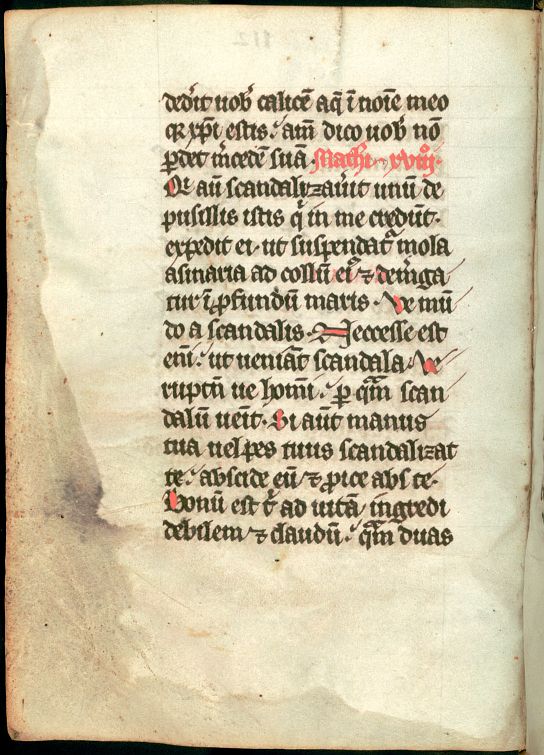 dederit uob calicē aq̄ ī noīe meo
qr xp̄i estis. am̄ dico uob nō
ꝑdet m̄cedē suā. Mathi xviij.
Qi aū scandalizau̓it unū de
pusillis istis q̓ in me credūt.
expedit ei. ut suspendatᷣ mola
asinaria ad collū eiꝰ ⁊ dem̓ga
tur ī ꝓfundū maris. Ve mū
do a scandalis. Neccesse est
enī. ut ueniāt scandala. Ve
ruptn̄ ue homī. ꝑ quē scan
dalū uēit. Si aūt manus
tua uel pes tuus scandalizat
te. abscide eū ⁊ ꝓice abs te.
Bonū est t̓ ad uitā ingredi
debilem ⁊ claudū. qm̄ duas